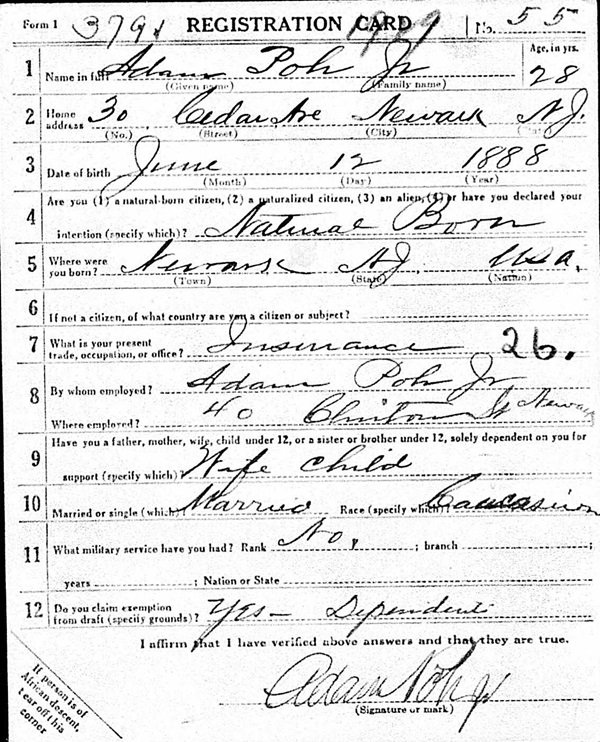 Form 1 3791 REGISTRATION CARD 1979 No. 55
1 Name in full Adam Poh Jr Age, in yrs. 28
(Given name) (Family name)
2 Home address 30 Cedar Ave Newark N.J.
(No.) (Street) (City) (State)
3 Date of birth June 12 1888
(Month) (Day) (Year)
Are you (1) a natural-born citizen, (2) a naturalized citizen, (3) an alien, (4) or have you declared your
4 intention (specify which)? Natural Born
5 Where were you born? Newark N.J. USA.
(Town) (State) (Nation)
6 If not a citizen, of what country are you a citizen or subject?
7 What is your present trade, occupation, or office? Insurance 26.
8 By whom employed? Adam Poh Jr
Where employed? 40 Clinton St Newark
9 Have you a father, mother, wife, child under 12, or a sister or brother under 12, solely dependent on you for
support (specify which)? Wife child
10 Married or single (which)? Married Race (specify which)? Caucasian
11 What military service have you had? Rank No, ; branch ;
years ; Nation or State
12 Do you claim exemption from draft (specify grounds)? Yes - Dependent
I affirm that I have verified above answers and that they are true.
Adam Poh Jr
(Signature or mark)
If person is of
African descent,
tear off this
corner